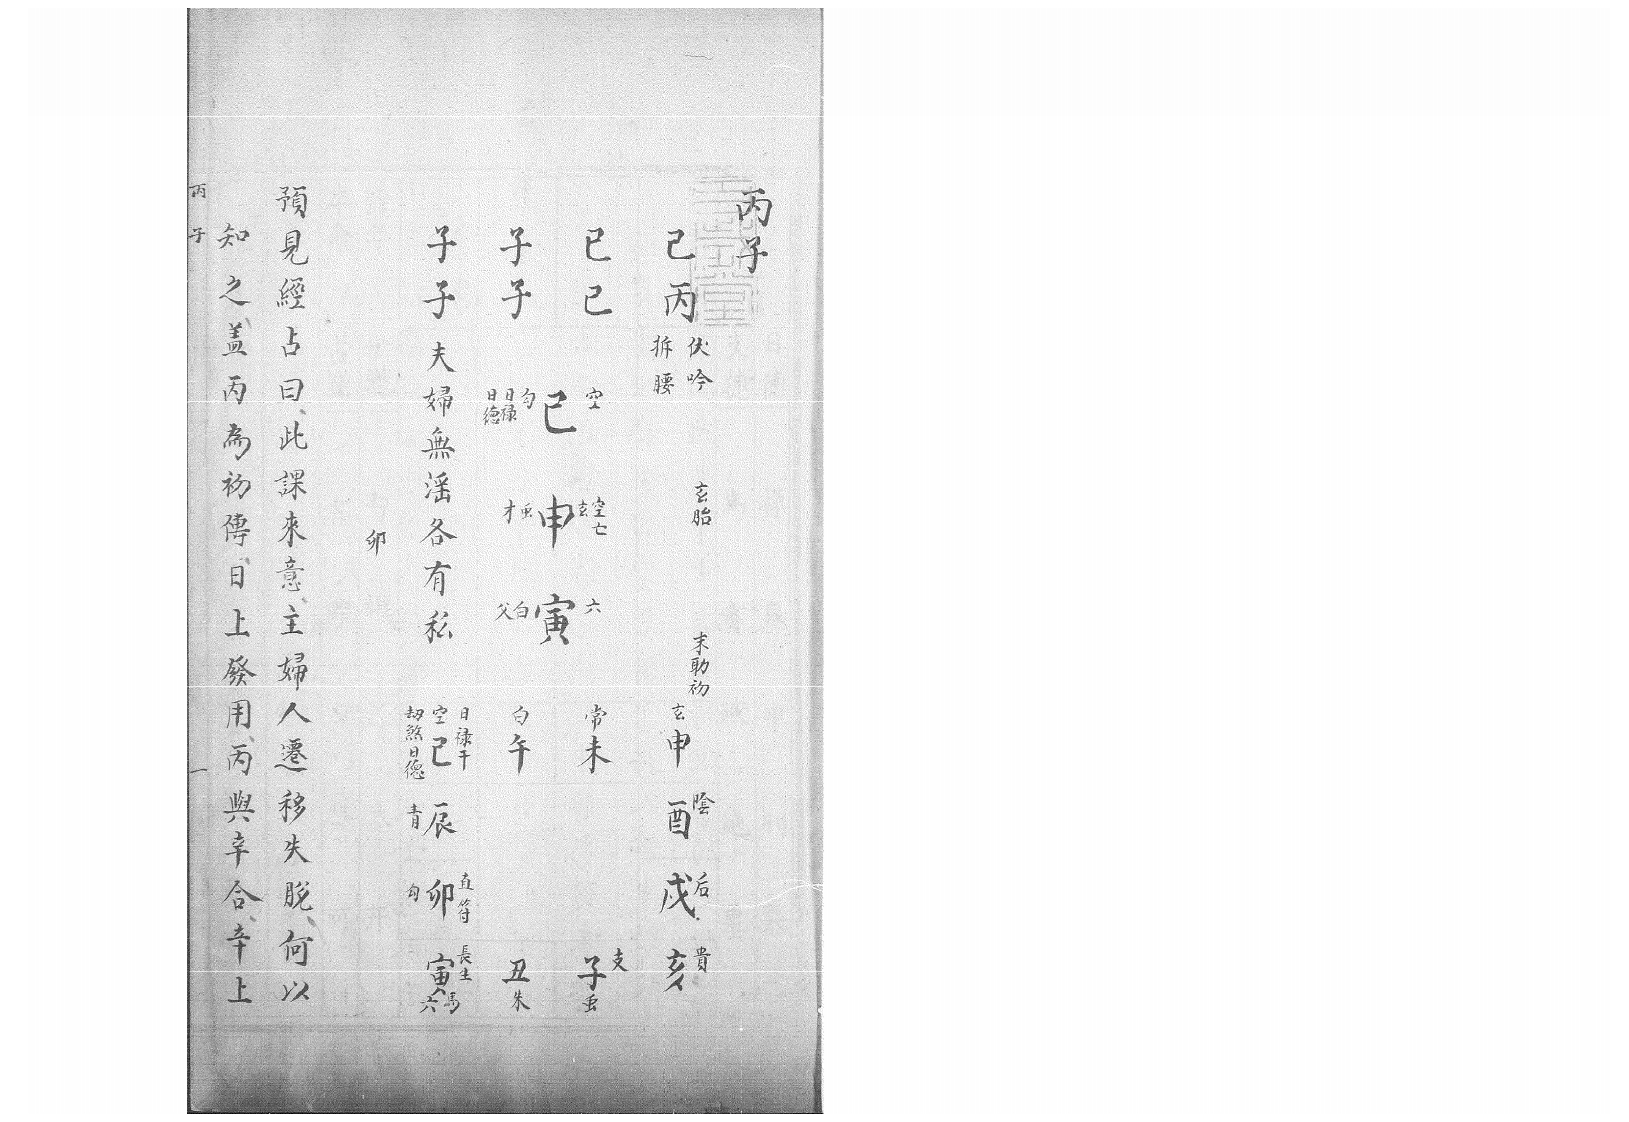 丙子
巳丙 伏吟 拆腰 玄胎 末助初 玄申 陰酉 后戌 貴亥
巳巳 空 空亡 玄 六 常未 支子 䖝
巳 申 寅
子子 勾 日祿 日德 才 䖝 白 父 白午 丑朱
子子 夫婦無滛各有私 日祿干 空巳 劫煞日德 青辰 直符 卯勾 長生 寅 馬 六
卯
預見經占曰此課來意主婦人遷移失脫何以
知之盖丙為初傳日上發用丙與辛合辛上
丙子 一